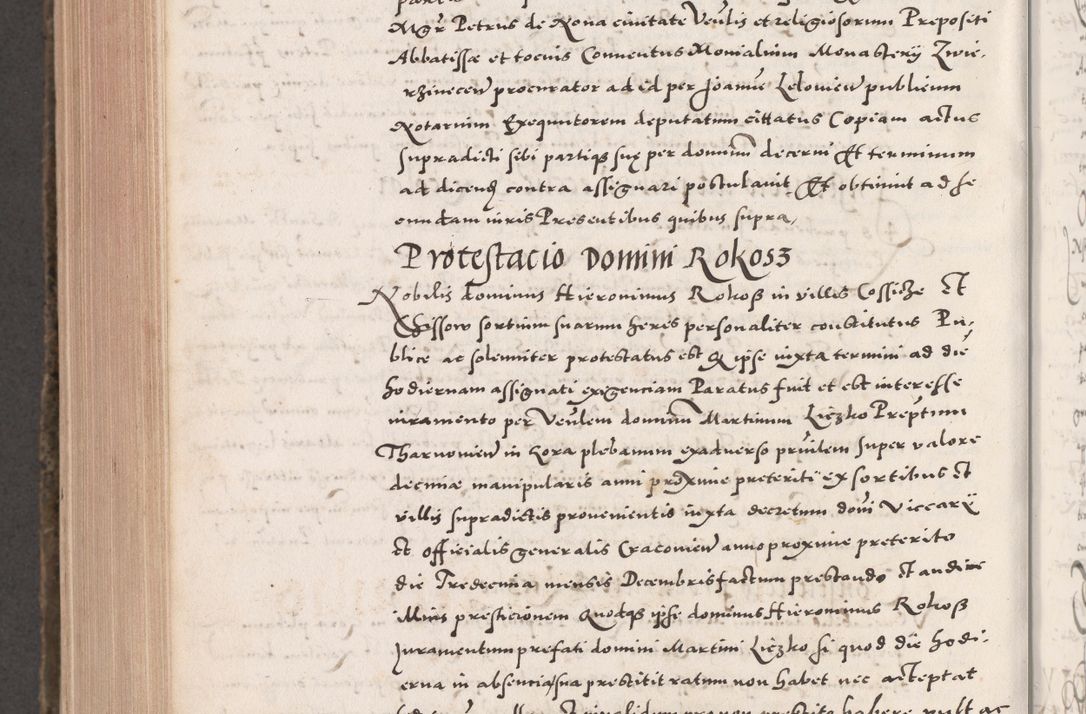 Mgr Petrus de Nova civitate Venlis et religiosorum Prepositi
Abbatissæ et tocius Conventus Monialium Monastery Zwie-
rzinecen procurator ad id per Joanne Lelowien publicum
Notarium Exequutorem deputatum cittatus Copiam actus
supradicti sibi partiq; suę per dominum decerni Et terminum
ad dicend contra assignari postulavit Et obtinuit ad se
cundam iuris Presentibus quibus supra,
Protestacio Domini Rokosz
Nobilis dominus Hieronimus Rokosz in villis Cossicze Et
Chissow sortium suarum heres personaliter constitutus Pu-
blice ac solenniter protestatus est Q ipse iuxta termini ad die
hodiernam assignati exigenciam Paratus fuit et est interesse
iuramento per Venlem dominum Martinum Liczko Preptum
Tharnovien in Zora plebanum exadverso prinlem super valore
decimæ manipularis anni proxime preteriti ex sortibus Et
villis supradictis provenientis iuxta decretum domi Viccarii
Et officialis generalis Cracovien anno proxime preterito
die Tredecima mensis Decembris factum prestando Et audire
illius presticionem Quodq; ipse dominus Hieronimus Rokosz
Juramentum prefati domini Martini Liczko si quod die hodi-
erna in absencia sua prestitit ratum non habet nec acceptat